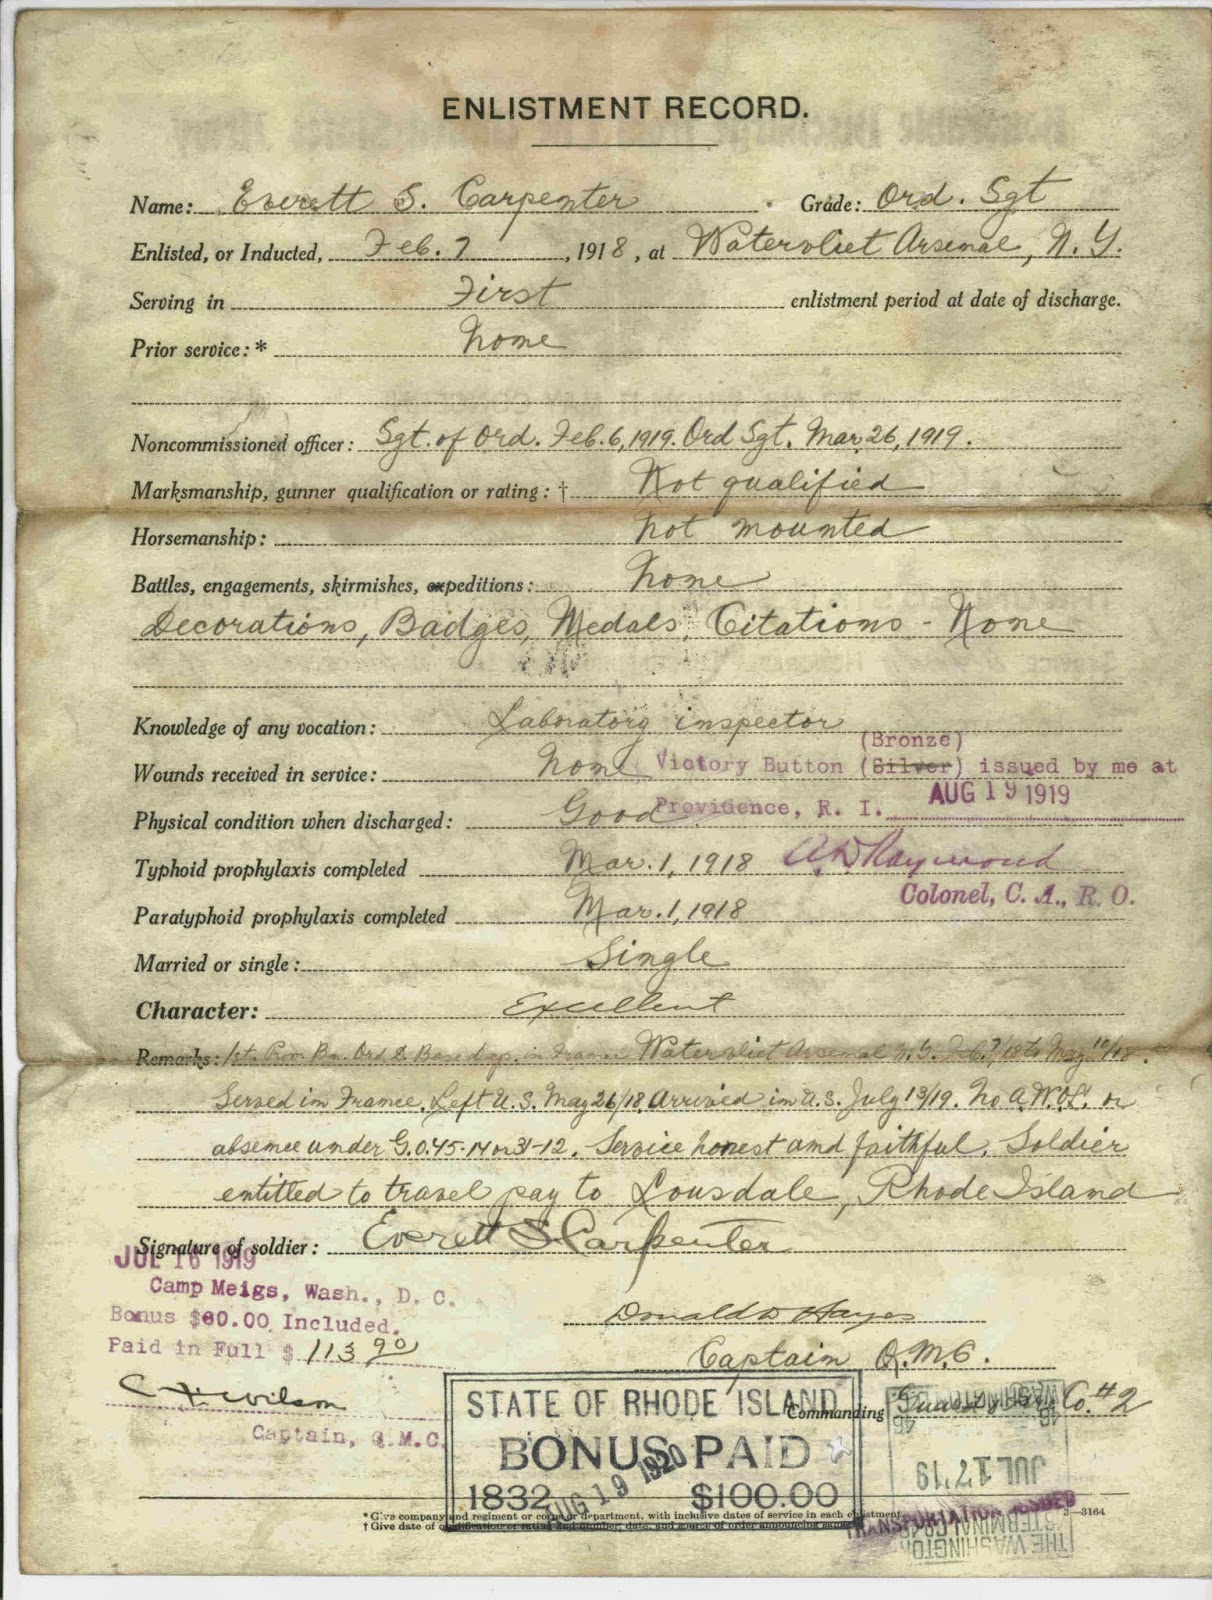 ENLISTMENT RECORD.
Name: Everett S. Carpenter Grade: Ord. Sgt
Enlisted, or Inducted, Feb. 7, 1918, at Watervliet Arsenal, N.Y.
Serving in First enlistment period at date of discharge.
Prior service:* None
Noncommissioned officer: Sgt. of Ord. Feb. 6, 1919. Ord Sgt. Mar 26, 1919.
Marksmanship, gunner qualification or rating:† Not qualified
Horsemanship: Not mounted
Battles, engagements, skirmishes, expeditions: None
Decorations, Badges, Medals, Citations - None
Knowledge of any vocation: Laboratory inspector
(Bronze)
Wounds received in service: None Victory Button (Silver) issued by me at
Physical condition when discharged: Good Providence, R. I. AUG 19 1919
Typhoid prophylaxis completed Mar. 1, 1918 Raymond
Colonel, C. A., R. O.
Paratyphoid prophylaxis completed Mar. 1, 1918
Married or single: Single
Character: Excellent
Remarks: 1st. Prov. Bn. Ord. in France Watervliet Arsenal N.Y. Feb. 7/18 to May 10/18.
Served in France. Left U.S. May 26/18. Arrived in U.S. July 13/19. No A.W.O.L. or
absence under G.O.45-14 or 31-12. Service honest and faithful. Soldier
entitled to travel pay to Lonsdale, Rhode Island
Signature of soldier: Everett S Carpenter
JUL 16 1919
Camp Meigs, Wash., D. C.
Bonus $60.00 Included.
Paid in Full $ 113 90
Wilson
Captain, Q.M.C.
Donald D Hayes
Captain Q.M.C.
Commanding Co. #2
STATE OF RHODE ISLAND
BONUS PAID
1832 $100.00
AUG 19 1920
WASHINGTON
46 46
JUL 17 19
TRANSPORTATION ISSUED
THE WASHINGTON
TERMINAL CO
*Give company and regiment or corps or department, with inclusive dates of service in each enlistment. 3—3164
†Give date of qualification or rating and number, date, and source of order announcing same.